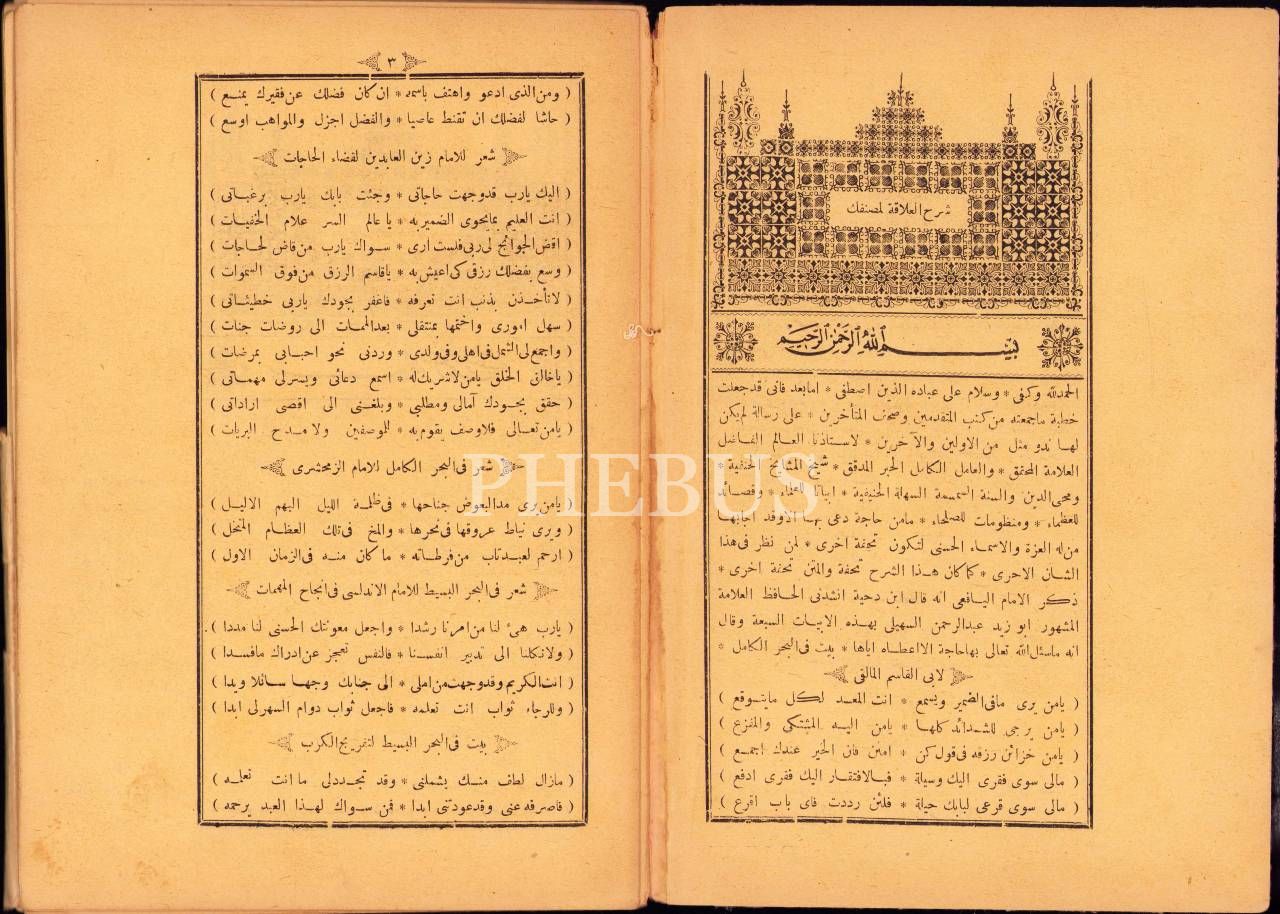 شرح العلاقة لمصنفك
بسم الله الرحمن الرحيم
الحمد لله وكفى * وسلام على عباده الذين اصطفى * اما بعد فانى قد جعلت
خطبة ما جمعته من كتب المتقدمين وصحف المتأخرين * على رسالة لم يكن
لها ندو مثل من الاولين والآخرين * لاستاذنا العالم الفاضل
العلامة المحقق * والعامل الكامل الحبر المدقق * شيخ المشايخ الحنفية *
ومحيى الدين والسنة السمحة السهلة الحنيفية * ابياتا للعلماء * وقصائد
للعظماء * ومنظومات للصلحاء * مامن حاجة دعى بها الاوقد اجابها
من له العزة والاسماء الحسنى لتكون تحفة اخرى * لمن نظر فى هذا
الشان الاحرى * كما كان هذا الشرح تحفة والمتن تحفة اخرى *
ذكر الامام اليافعى انه قال ابن دحية انشدنى الحافظ العلامة
المشهور ابو زيد عبدالرحمن السهيلى بهذه الابيات السبعة وقال
انه ماسئل الله تعالى بها حاجة الا اعطاه اياها * بيت فى البحر الكامل *
لابى القاسم المالقى
( يامن يرى مافى الضمير ويسمع * انت المعد لكل مايتوقع )
( يامن يرجى للشدائد كلها * يامن اليه المشتكى والمفزع )
( يامن خزائن رزقه فى قول كن * امنن فان الخير عندك اجمع )
( مالى سوى فقرى اليك وسيلة * فبالافتقار اليك فقرى ادفع )
( مالى سوى قرعى لبابك حيلة * فلئن رددت فاى باب اقرع )
٣
( ومن الذى ادعو واهتف باسمه * ان كان فضلك عن فقيرك يمنع )
( حاشا لفضلك ان تقنط عاصيا * والفضل اجزل والمواهب اوسع )
شعر للامام زين العابدين لقضاء الحاجات
( اليك يارب قدوجهت حاجاتى * وجئت بابك يارب برغباتى )
( انت العليم بمايحوى الضمير به * ياعالم السر علام الخفيات )
( اقض الحوائج لى ربى فلست ارى * سواك يارب من قاض لحاجات )
( وسع بفضلك رزقى كى اعيش به * ياقاسم الرزق من فوق السموات )
( لاتأخذن بذنب انت تعرفه * فاغفر بجودك ياربى خطيئاتى )
( سهل امورى واختمها بمنتقلى * بعد الممات الى روضات جنات )
( واجمع لى الشمل فى اهلى وفى ولدى * وردنى نحو احبابى بمرضات )
( ياخالق الخلق يامن لاشريك له * اسمع دعائى ويسرلى مهماتى )
( حقق بجودك آمالى ومطلبى * وبلغنى الى اقصى اراداتى )
( يامن تعالى فلاوصف يقوم به * للموصفين ولا مدح البريات )
شعر فى البحر الكامل للامام الزمخشرى
( يامن يرى مد البعوض جناحها * فى ظلمة الليل البهيم الاليل )
( ويرى نياط عروقها فى نحرها * والمخ فى تلك العظام النحل )
( ارحم لعبد تاب من فرطاته * ما كان منه فى الزمان الاول )
شعر فى البحر البسيط للامام الاندلسى فى انجاح المهمات
( يارب هئ لنا من امرنا رشدا * واجعل معونتك الحسنى لنا مددا )
( ولاتكلنا الى تدبير انفسنا * فالنفس تعجز عن ادراك مافسدا )
( انت الكريم وقدوجهت من املى * الى جنابك وجها سائلا ويدا )
( وللرجاء ثواب انت تعلمه * فاجعل ثواب دوام السهرلى ابدا )
بيت فى البحر البسيط لتفريج الكرب
( مازال لطف منك يشملنى * وقد تجددلى ما انت تعلمه )
( فاصرفه عنى وقدعودتنى ابدا * فمن سواك لهذا العبد يرحمه )
PHEBUS